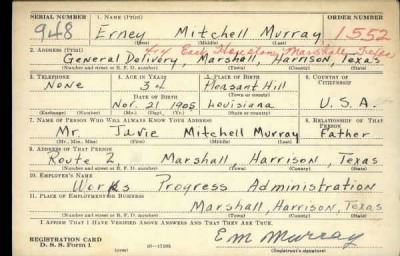 SERIAL NUMBER 1. NAME (Print) ORDER NUMBER
948 Erney Mitchell Murray 1552
(First) (Middle) (Last)
2. ADDRESS (Print)
General Delivery, Marshall, Harrison, Texas
(Number and street or R. F. D. number) (Town) (County) (State)
3. TELEPHONE 4. AGE IN YEARS 5. PLACE OF BIRTH 6. COUNTRY OF CITIZENSHIP
None 34 Pleasant Hill
DATE OF BIRTH (Town or county)
Nov. 21 1905 Louisiana U.S.A.
(Exchange) (Number) (Mo.) (Day) (Yr.) (State or country)
7. NAME OF PERSON WHO WILL ALWAYS KNOW YOUR ADDRESS 8. RELATIONSHIP OF THAT PERSON
Mr. Mitchell Murray Father
(Mr., Mrs., Miss) (First) (Middle) (Last)
9. ADDRESS OF THAT PERSON
Route 2 Marshall, Harrison, Texas
(Number and street or R. F. D. number) (Town) (County) (State)
10. EMPLOYER'S NAME
Works Progress Administration
11. PLACE OF EMPLOYMENT OR BUSINESS
Marshall, Harrison, Texas
(Number and street or R. F. D. number) (Town) (County) (State)
I AFFIRM THAT I HAVE VERIFIED ABOVE ANSWERS AND THAT THEY ARE TRUE.
REGISTRATION CARD
D. S. S. Form 1
E M Murray
(Registrant's signature)